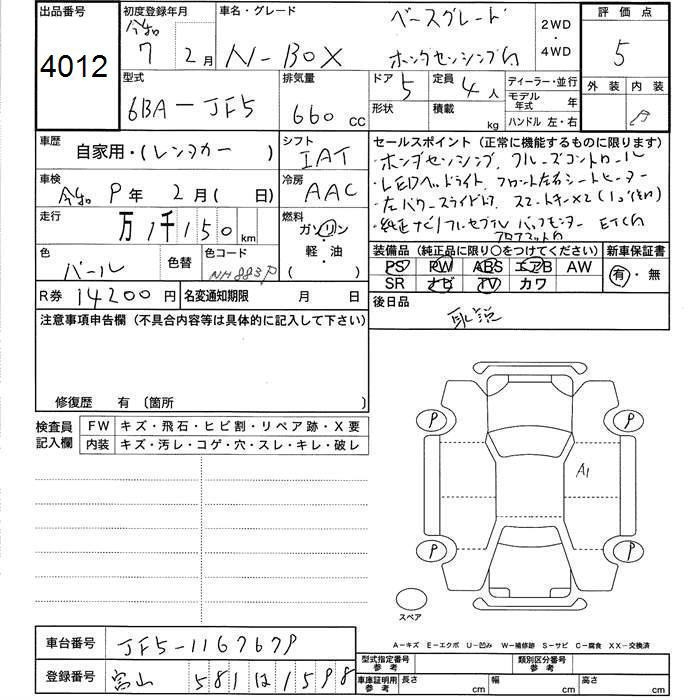 出品番号 初度登録年月 車名・グレード 評価点
4012 令和 7 2月 N-BOX ベースグレード 2WD・4WD 5
ホンダセンシング付
型式 排気量 ドア 定員 ディーラー・並行 外装 内装
6BA-JF5 660 CC 5 4人 モデル年式 年
形状 積載 kg ハンドル 左・右
車歴 自家用・(レンタカー ) シフト IAT
セールスポイント (正常に機能するものに限ります)
・ホンダセンシング、クルーズコントロール
・LEDヘッドライト、フロント左右シートヒーター
・左パワースライドドア スマートキー×2
・純正ナビ/フルセグTV バックモニター ETC付
フロアマット付
車検 令和 9年 2月 ( 日) 冷房 AAC
走行 万 1千150 km 燃料 ガソリン・軽・油 ( )
色 パール 色替 色コード NH883P
装備品 (純正品に限り○をつけてください) 新車保証書
PS PW ABS エアB AW 有・無
SR ナビ TV カワ
R券 14200円 名変通知期限 月 日
後日品 取説
注意事項申告欄 (不具合内容等は具体的に記入して下さい)
修復歴 有 〔箇所 〕
検査員記入欄 FW キズ・飛石・ヒビ割・リペア跡・X要
内装 キズ・汚レ・コゲ・穴・スレ・キレ・破レ
P P
A1
P P
スペア
A-キズ E-エクボ U-凹み W-補修跡 S-サビ C-腐食 XX-交換済
車台番号 JF5-1167679
型式指定番号参考 類別区分番号参考
登録番号 富山 581 は 1598
車庫証明用参考 長さ cm 幅 cm 高さ cm